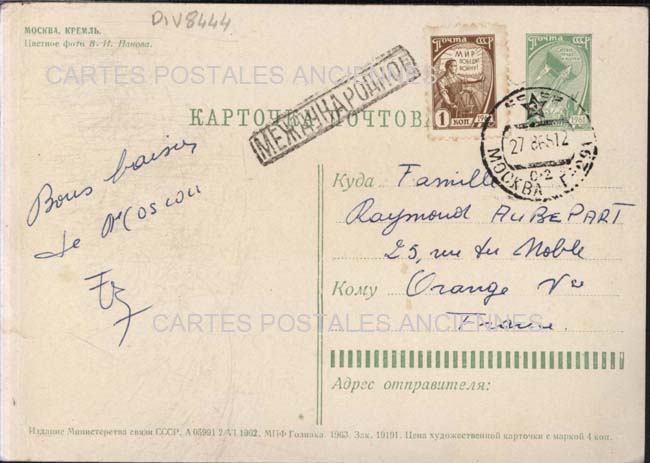 DIV8444
МОСКВА. КРЕМЛЬ.
Цветное фото В. И. Панова.
CARTES POSTALES ANCIENNES
КАРТОЧКА ПОЧТОВАЯ
МЕЖДУНАРОДНОЕ
ПОЧТА СССР
МИР ПОБЕДИТ ВОЙНУ
1 КОП 1961
ПОЧТА СССР
1961
27
МОСКВА
Bons baisers
de Moscou
Куда Famille
Raymond AUBEPART
25, rue du Noble
Кому Orange Vse
France.
CARTES POSTALES ANCIENNES
Адрес отправителя:
Издание Министерства связи СССР. А 05991 2/VI 1962. МПФ Гознака. 1963. Зак. 19191. Цена художественной карточки с маркой 4 коп.